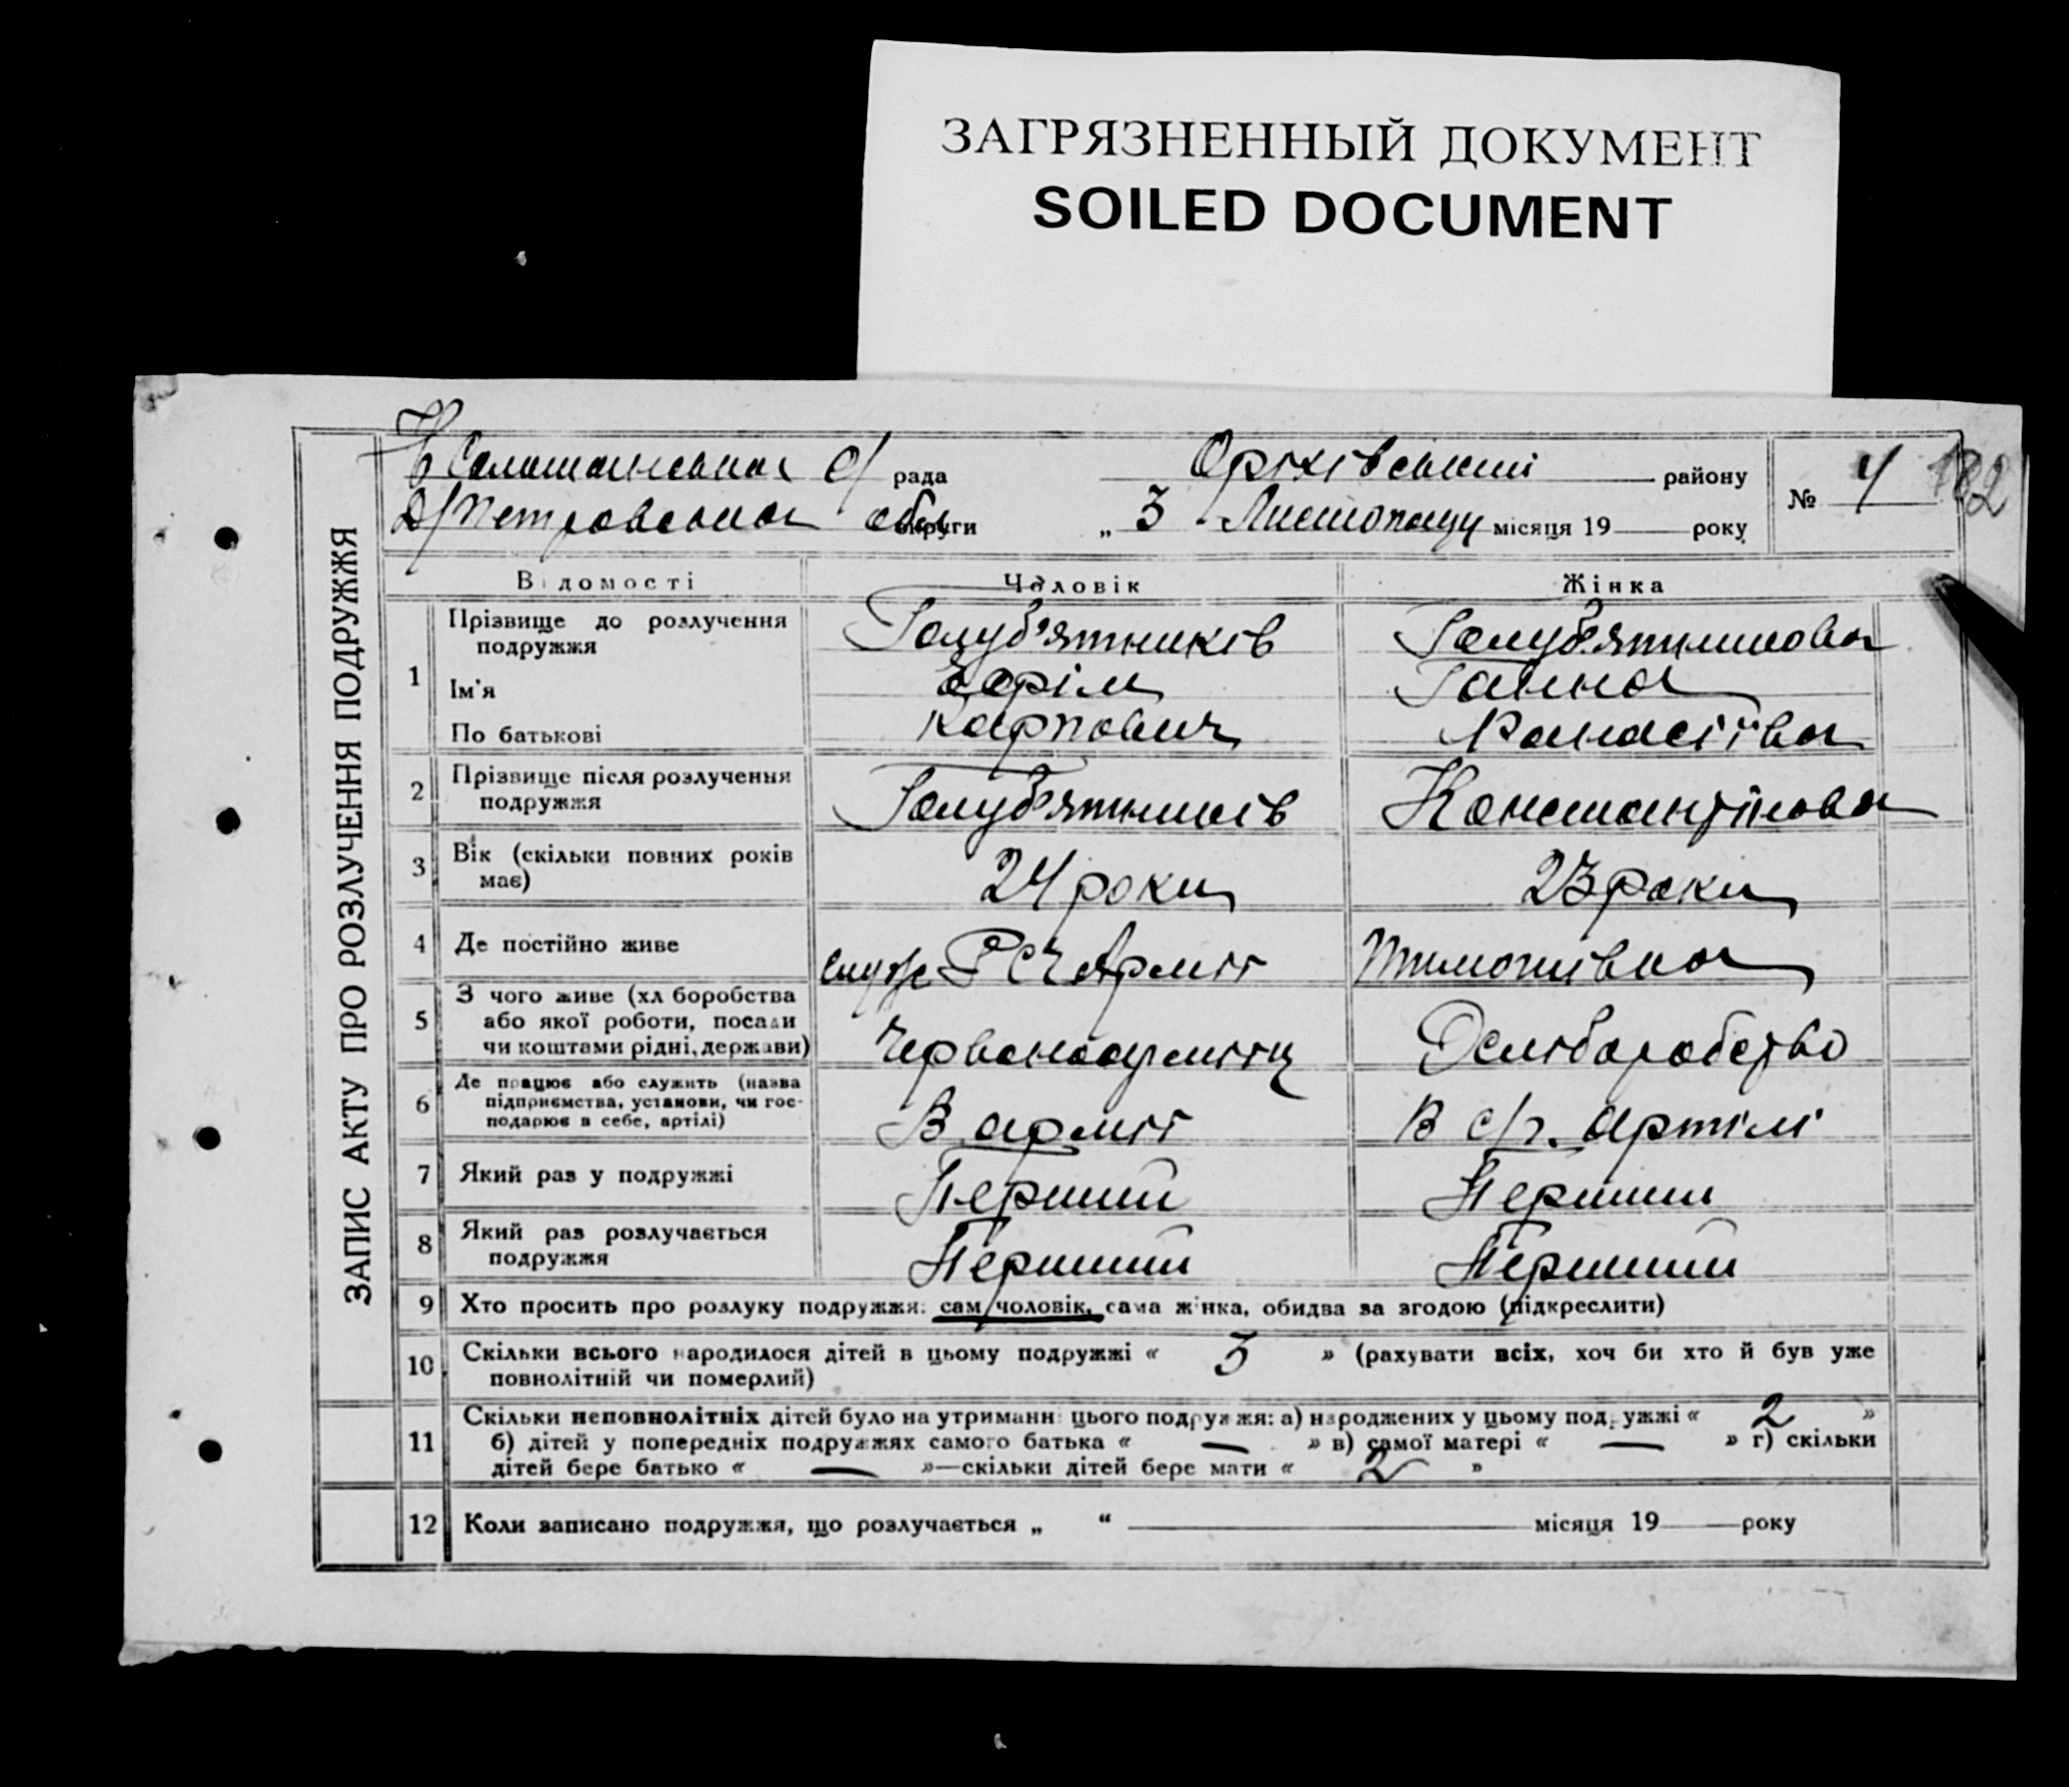 ЗАГРЯЗНЕННЫЙ ДОКУМЕНТ
SOILED DOCUMENT
ЗАПИС АКТУ ПРО РОЗЛУЧЕННЯ ПОДРУЖЖЯ
С/ рада Оріхівський району № 4 182
Д/Петровська обл округи „ 3 Листопаду місяця 19 року
Відомості Чоловік Жінка
1 Прізвище до розлучення подружжя Голуб'ятників Голуб'ятникова
Ім'я Єфрім Ганна
По батькові Карпович
2 Прізвище після розлучення подружжя Голуб'ятників Константінова
3 Вік (скільки повних років має) 24 роки 23 роки
4 Де постійно живе служ РСЧ Армії Тимошівка
5 З чого живе (хліборобства або якої роботи, посади чи коштами рідні, держави) Червоноарміїц хліборобство
6 Де працює або служить (назва підприємства, установи, чи господарює в себе, артілі) В армії В с/г. артілі
7 Який раз у подружжі Перший Перший
8 Який раз розлучається подружжя Перший Перший
9 Хто просить про розлуку подружжя: сам чоловік, сама жінка, обидва за згодою (підкреслити)
10 Скільки всього народилося дітей в цьому подружжі « 3 » (рахувати всіх, хоч би хто й був уже
повнолітній чи померлий)
11 Скільки неповнолітніх дітей було на утриманні цього подружжя: а) народжених у цьому подружжі « 2 »
б) дітей у попередніх подружжях самого батька « — » в) самої матері « — » г) скільки
дітей бере батько « — »—скільки дітей бере мати « 2 »
12 Коли записано подружжя, що розлучається „ “ місяця 19 року